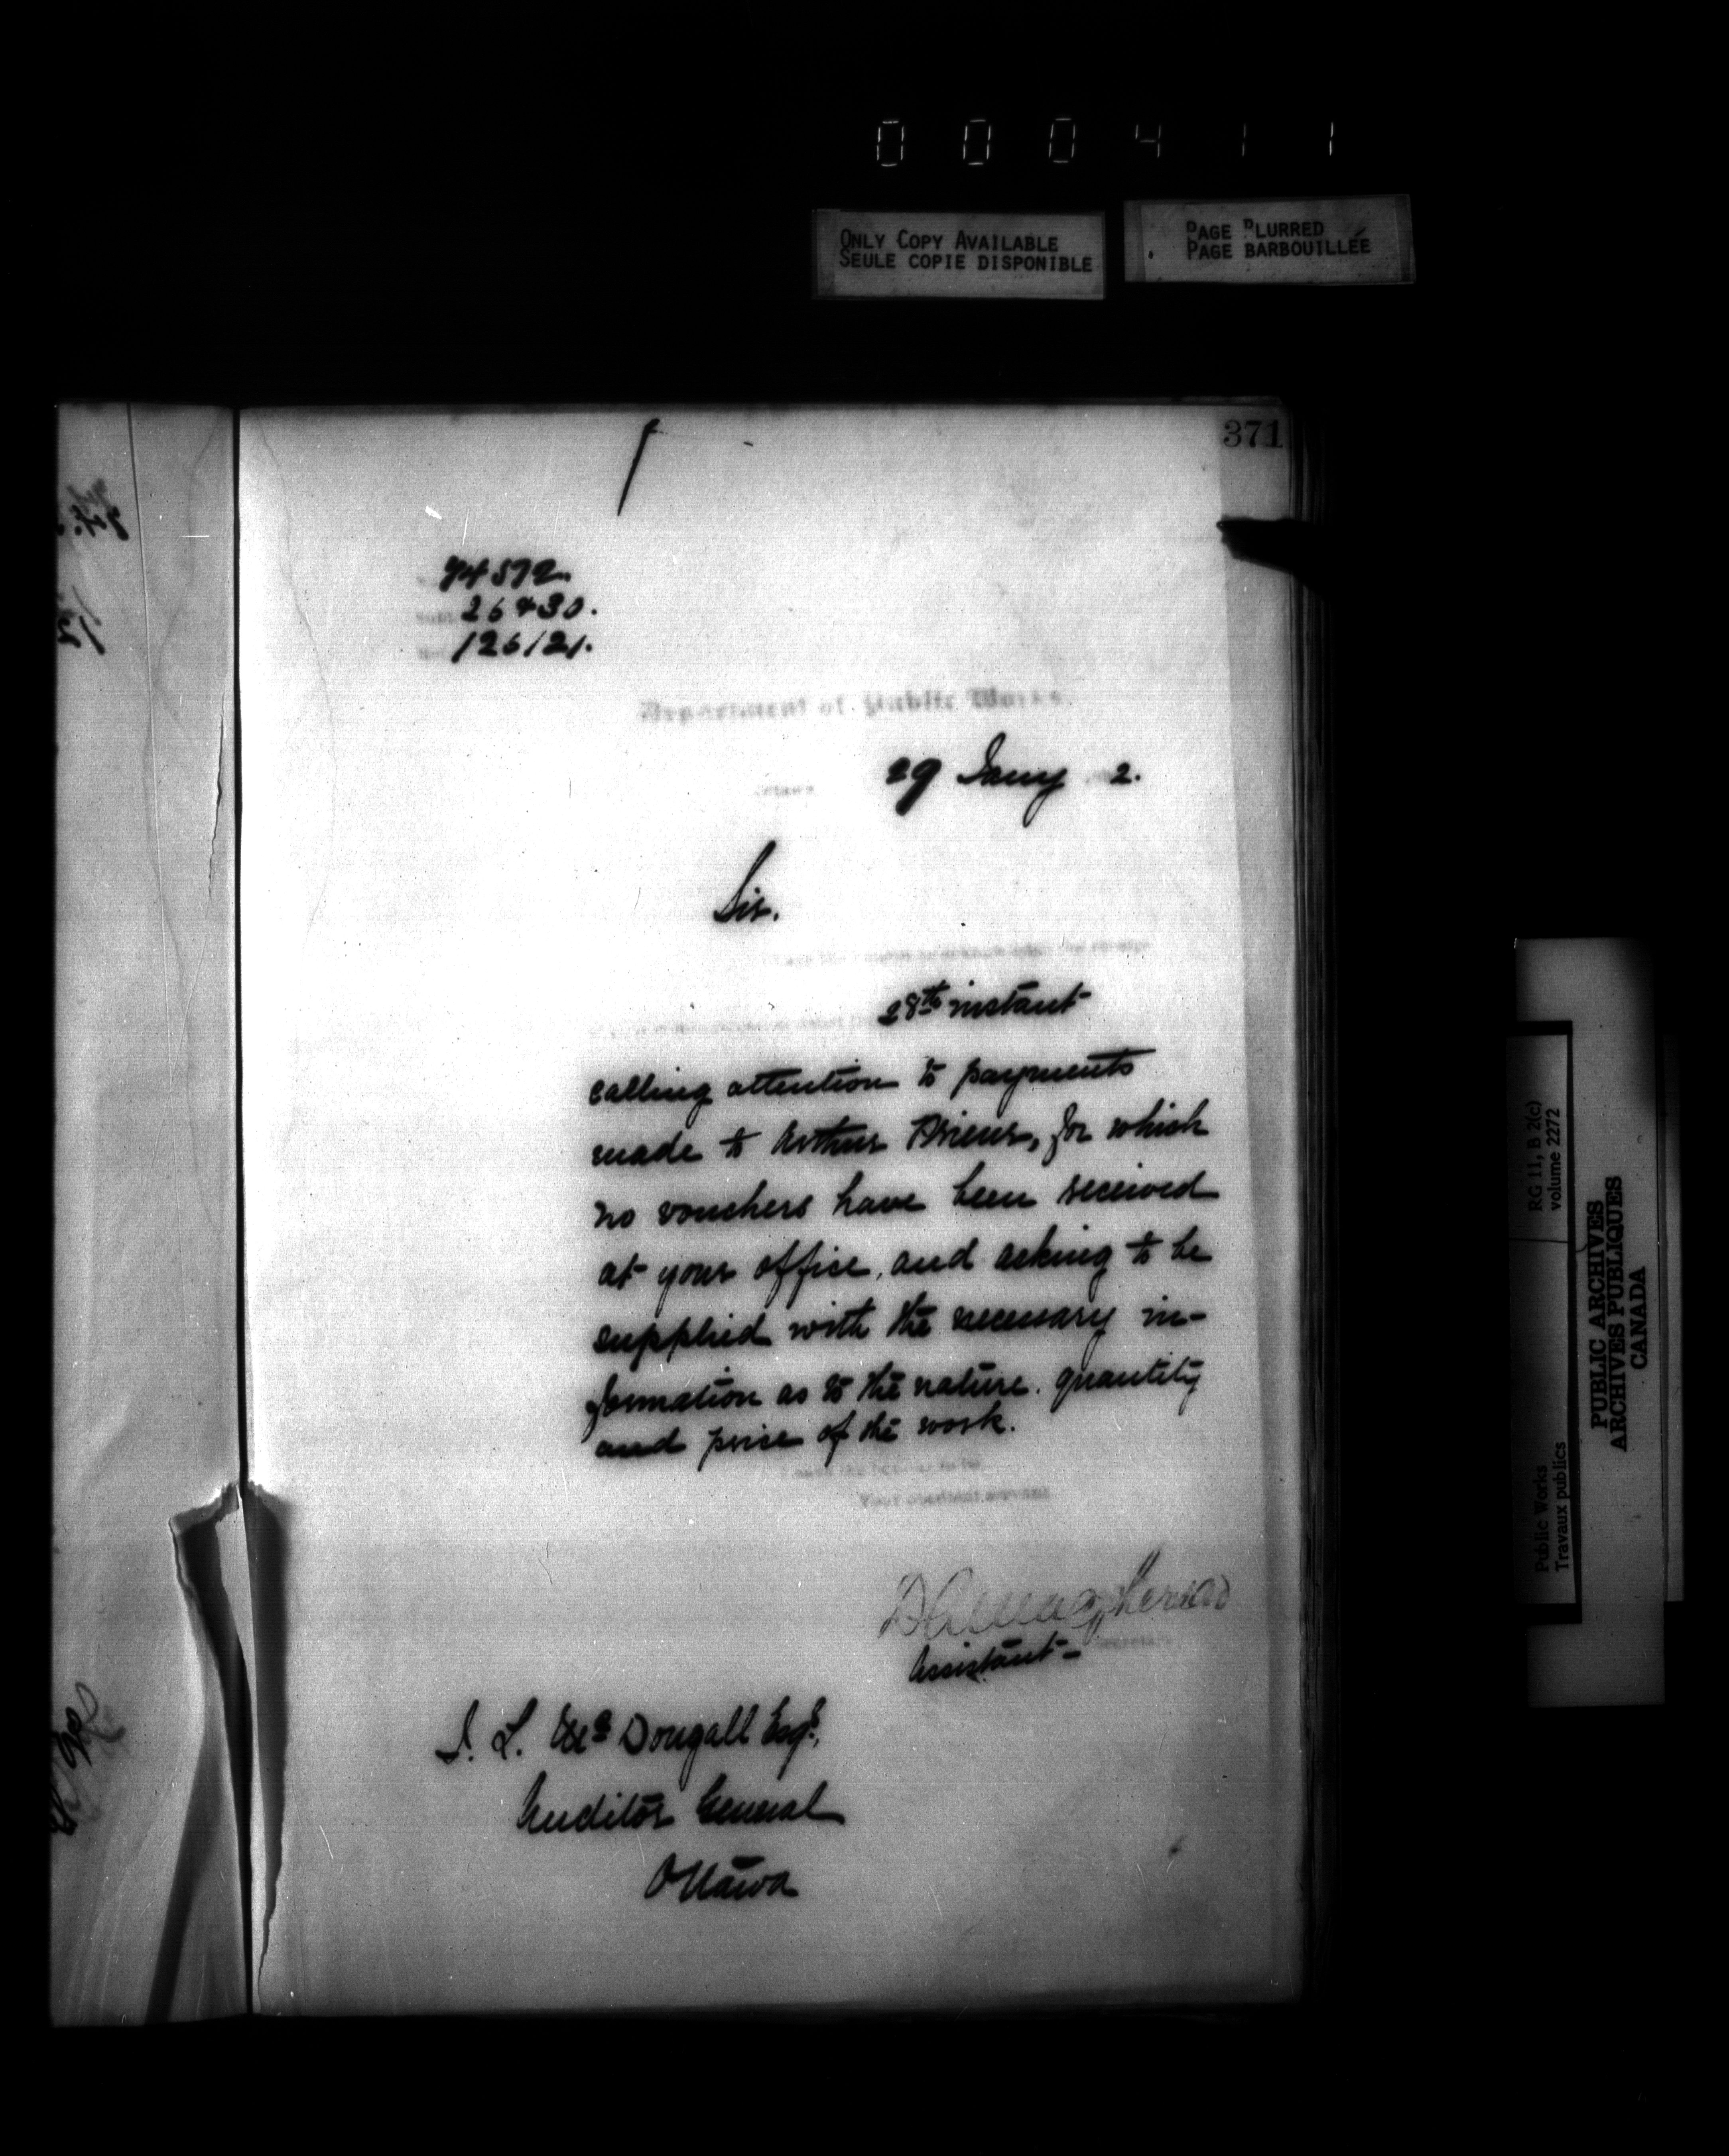 000411
ONLY COPY AVAILABLE
SEULE COPIE DISPONIBLE
PAGE BLURRED
PAGE BARBOUILLÉE
371
74572.
26430.
126121.
Department of Public Works.
29 Jany 2.
Sir.
28th instant
calling attention to payments
made to Arthur Prieur, for which
no vouchers have been received
at your office, and asking to be
supplied with the necessary in-
formation as to the nature. quantity
and price of the work.
Your obedient servant
Assistant- Secretary
J. L. McDougall Esqr.,
Auditor General
Ottawa
RG 11, B 2(c)
volume 2272
Public Works
Travaux publics
PUBLIC ARCHIVES
ARCHIVES PUBLIQUES
CANADA